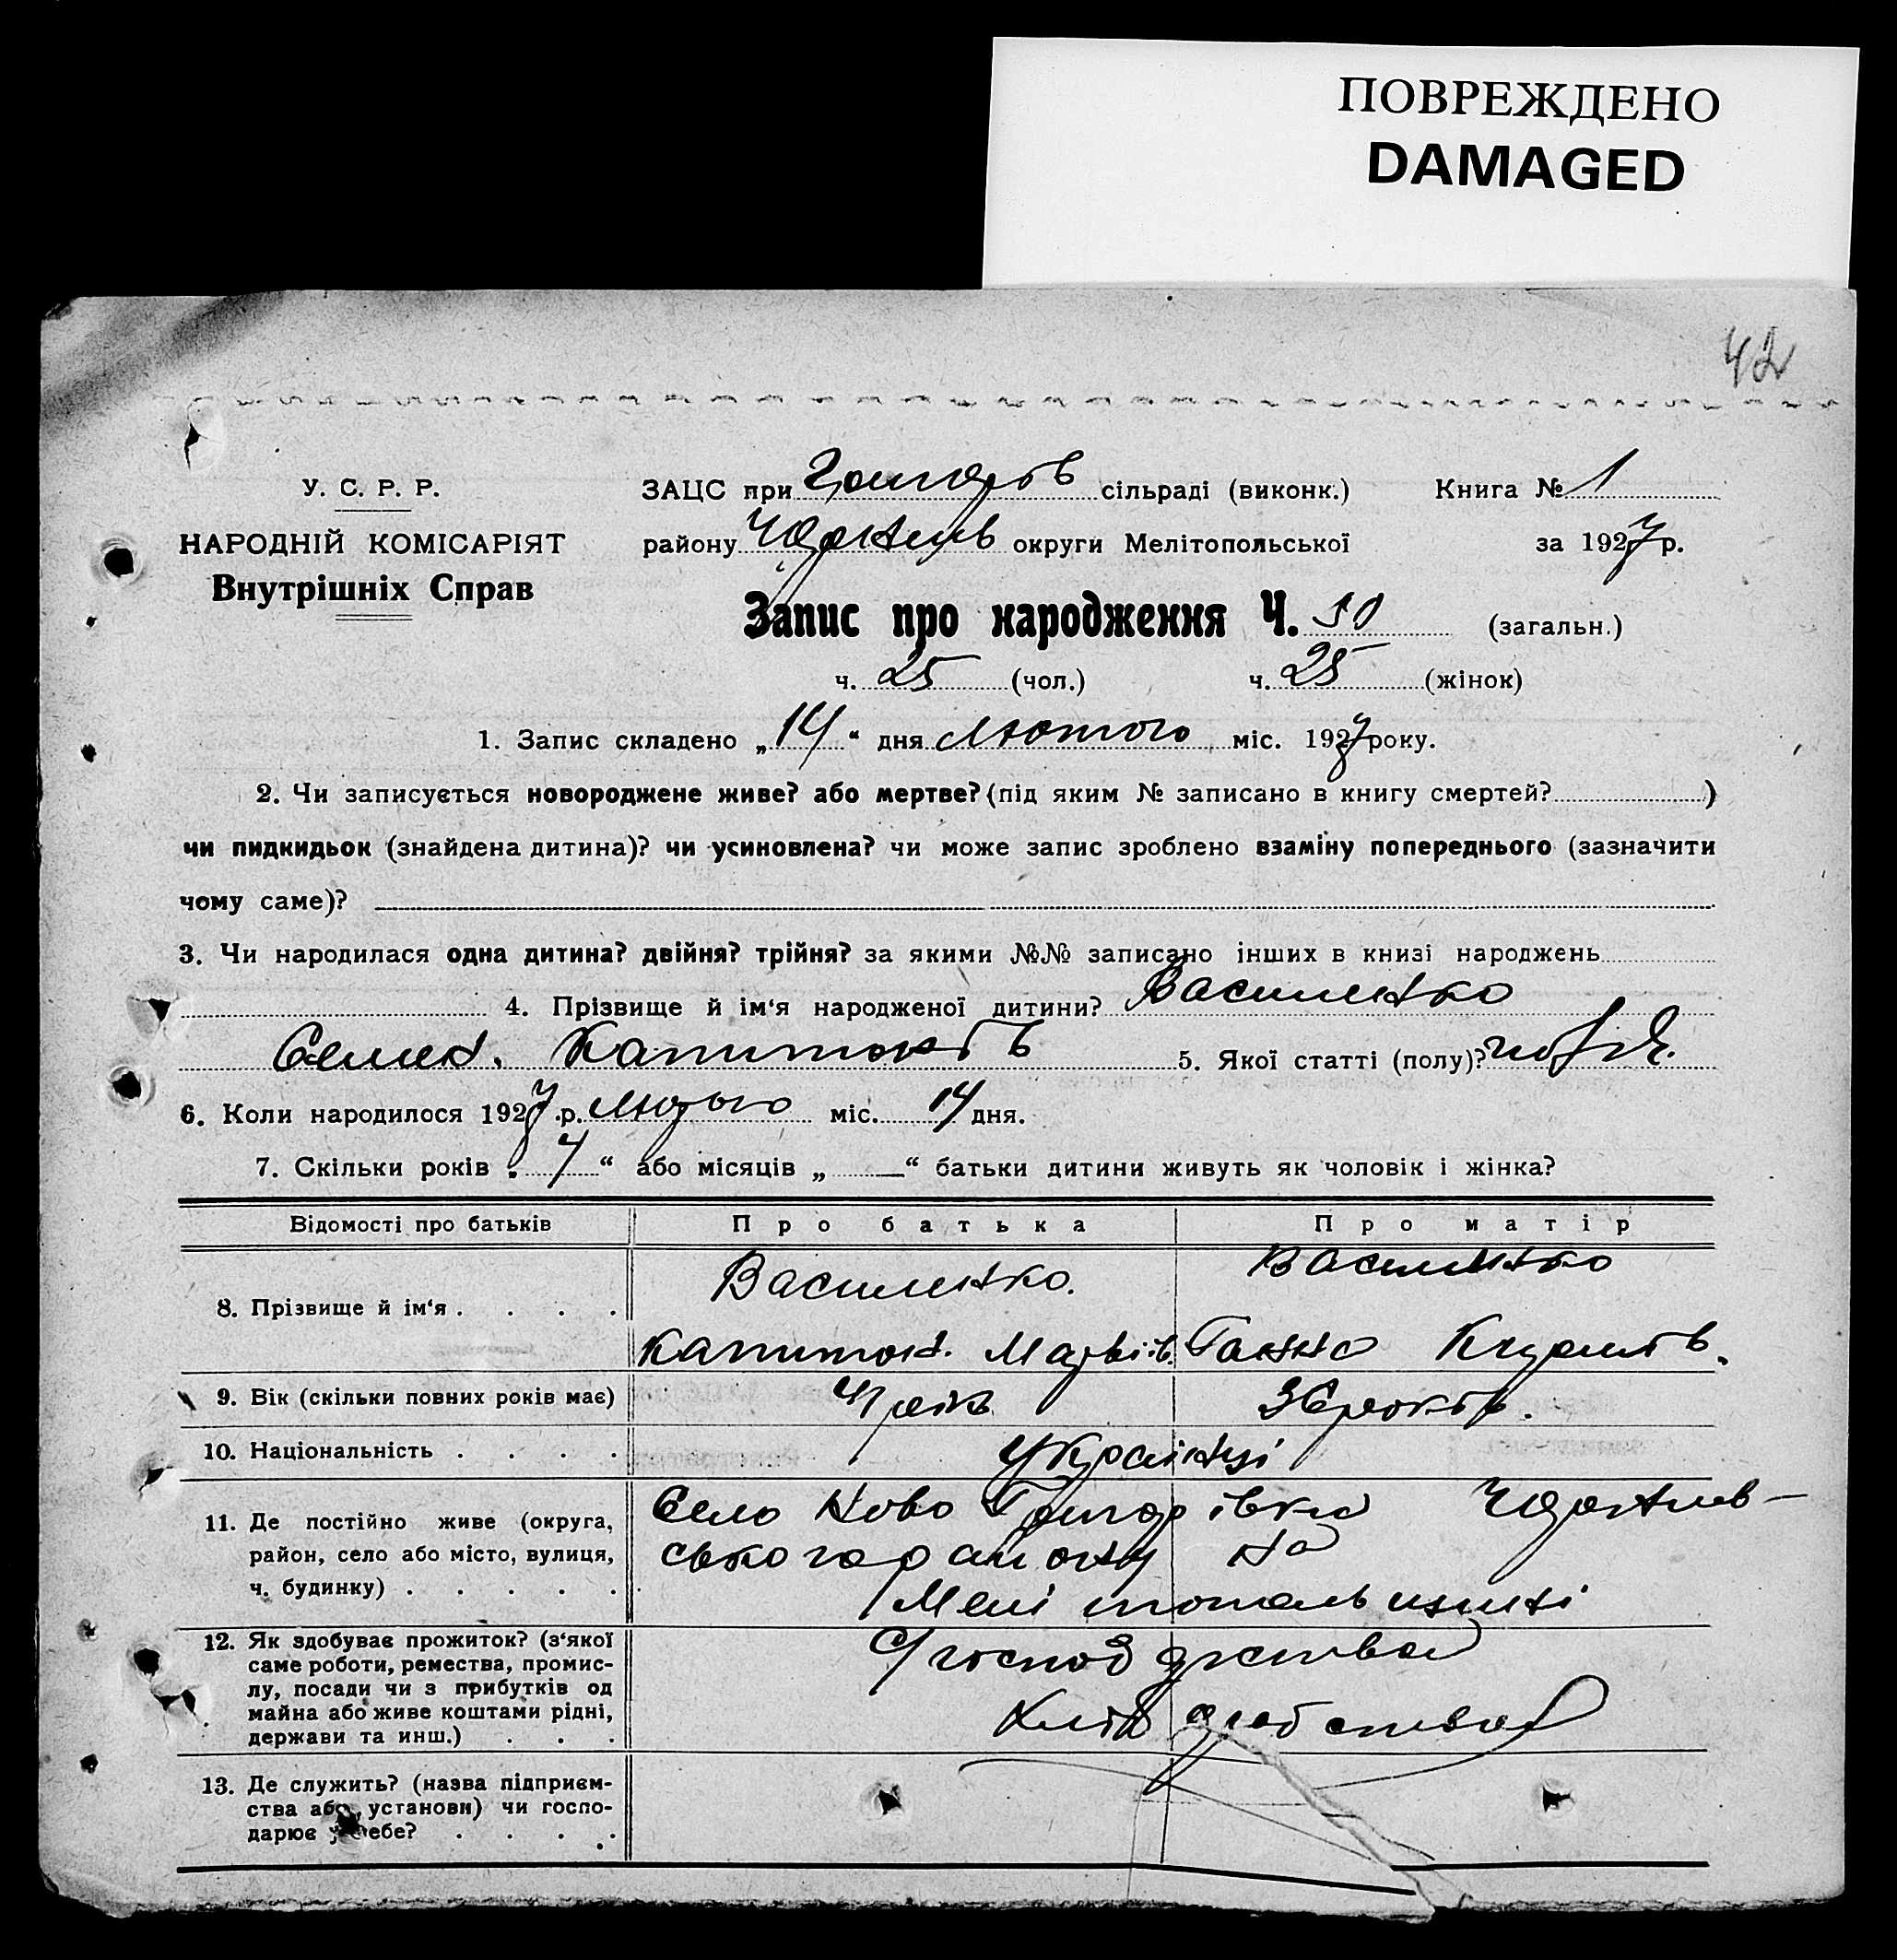 ПОВРЕЖДЕНО
DAMAGED
42
У. С. Р. Р.
НАРОДНІЙ КОМІСАРІЯТ
Внутрішніх Справ
ЗАЦС при сільраді (виконк.) Книга № 1
району округи Мелітопольської за 1927 р.
Запис про народження Ч. 50 (загальн.)
ч. 25 (чол.) ч. 25 (жінок)
1. Запис складено „14“ дня Лютого міс. 1927 року.
2. Чи записується новороджене живе? або мертве? (під яким № записано в книгу смертей? )
чи пидкидьок (знайдена дитина)? чи усиновлена? чи може запис зроблено взаміну попереднього (зазначити
чому саме)?
3. Чи народилася одна дитина? двійня? трійня? за якими №№ записано інших в книзі народжень
4. Прізвище й ім‘я народженої дитини? Василенко
Семен. Капитонів 5. Якої статті (полу)?
6. Коли народилося 1927 .р. Лютого міс. 14 дня.
7. Скільки років „ 4 “ або місяців „ — “ батьки дитини живуть як чоловік і жінка?
Відомості про батьків Про батька Про матір
8. Прізвище й ім‘я . . . . Василенко. Василенко
Капитон. Матвіїв. Ганна
9. Вік (скільки повних років має) 41 рік 36 років.
10. Національність . . . . Українці
11. Де постійно живе (округа, Село Ново Григорівка
район, село або місто, вулиця, ського району на
ч. будинку) . . . . . Мелітопольщині
12. Як здобуває прожиток? (з‘якої
саме роботи, ремества, промис-
лу, посади чи з прибутків од
майна або живе коштами рідні,
держави та инш.) . . . Хліборобства
13. Де служить? (назва підприєм-
ства або установи) чи госпо-
дарює у себе? . . . .